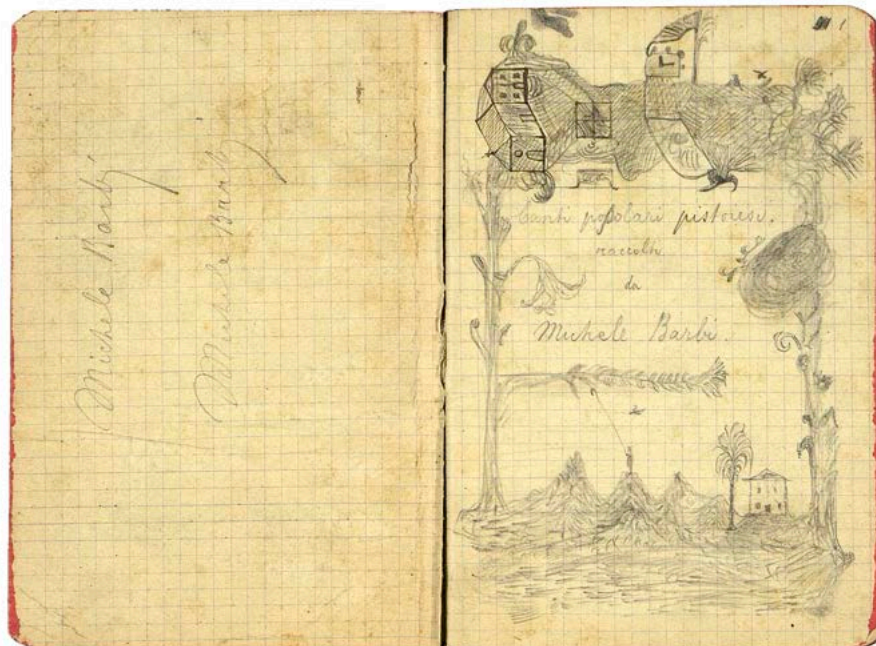 Michele Barbi
Michele Barbi
Canti popolari pistoiesi.
raccolti
da
Michele Barbi.